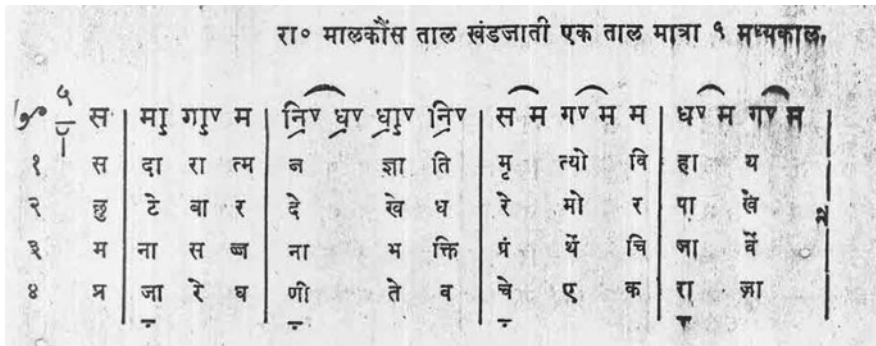 रा० मालकौंस ताल खंडजाती एक ताल मात्रा ५ मध्यकाल.
५ स | मा॒ गा॒ᵛ म | नि॒ᵛ ध॒ᵛ धा॒ᵛ नि॒ᵛ | स म गᵛ म म | धᵛ म गᵛ म |
१ स | दा रा त्म | न ज्ञा ति | मृ त्यो वि | हा य
२ लु | टे बा र | दे खे ध | रे मो र | पा खें
३ म | ना स ज्ज | ना भ क्ति | पं थें चि | जा वें
४ प्र | जा रे घ | णी ते व | चे ए क | रा ज्ञा